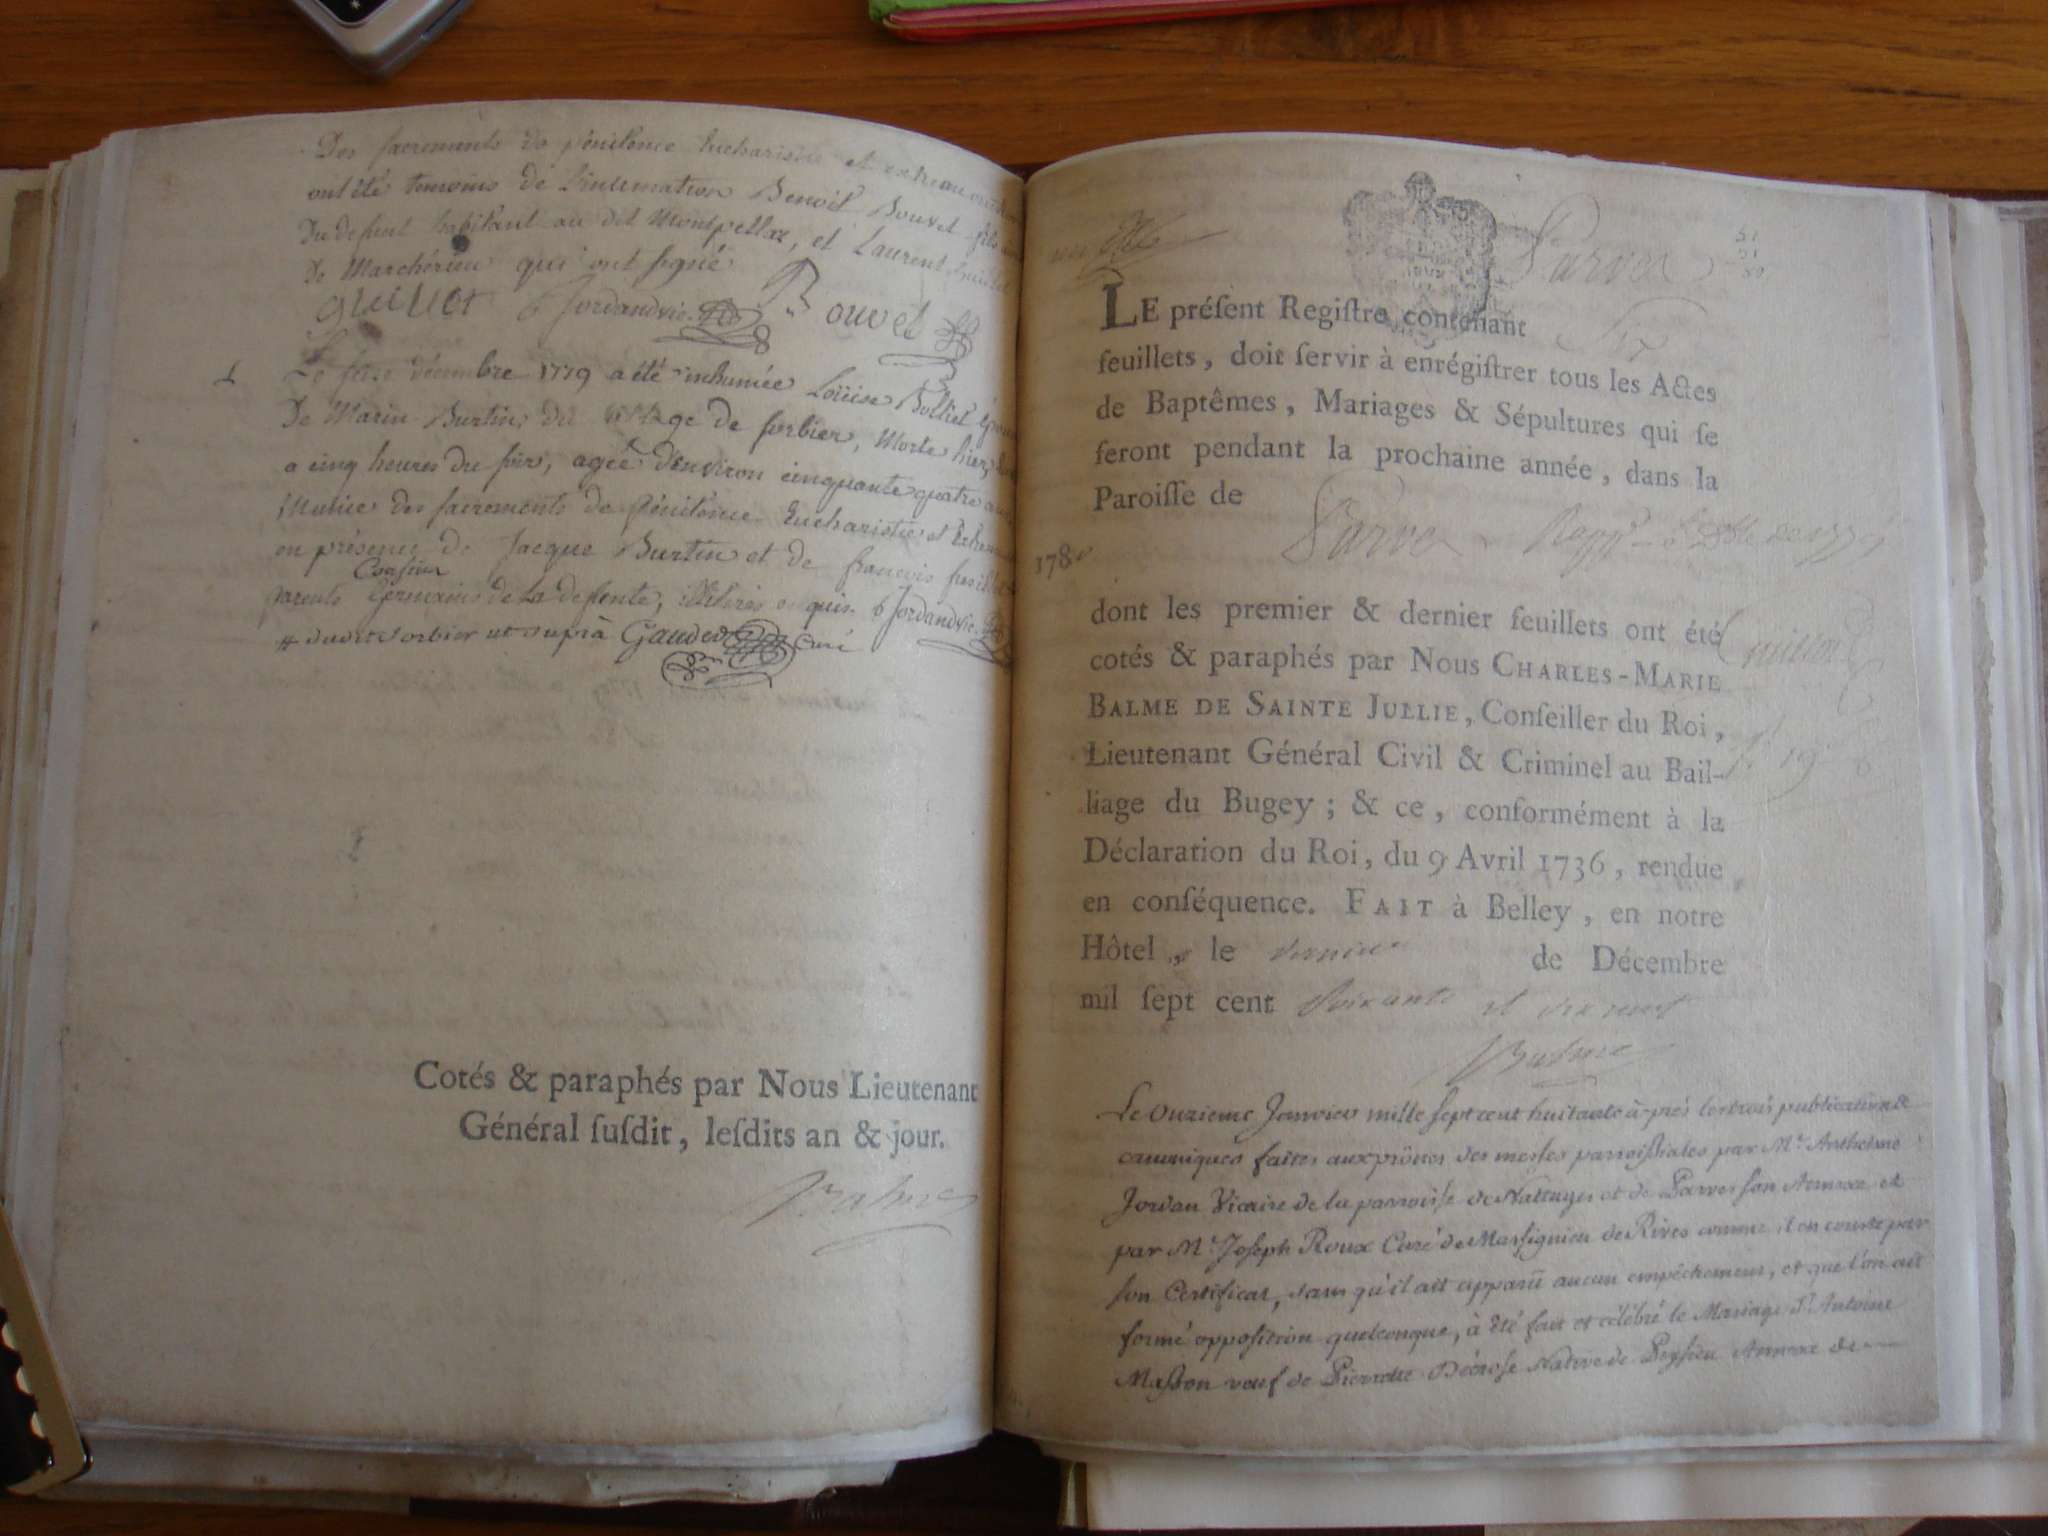 Des sacrements de pénitence Eucharistie et extreme onction
ont été temoins de l'inhumation Benoit Bouvet fils
Du defunt habitant au dit Montpellaz, et Laurent
De Marchérieu qui ont signé
guillot Jordan vic. Bouvet
Le seize décembre 1779 a été inhumée Loüise Bolliet épouse
De Marin Burtin, du village de sorbier, Morte hier,
a cinq heures du soir, agée d'environ cinquante quatre ans
Munie des sacrements de pénitence Eucharistie et Extreme
en présence de Jacque Burtin et de françois
Cousins
parents Germains de la defunte, illitérés
Jordan vic.
sorbier ut suprà Gaudet Curé
Cotés & paraphés par Nous Lieutenant
Général ſuſdit, leſdits an & jour.
Balme
Parves
51
51
50
LE préſent Regiſtre contenant Six
feuillets, doit ſervir à enrégiſtrer tous les Actes
de Baptêmes, Mariages & Sépultures qui ſe
feront pendant la prochaine année, dans la
Paroiſſe de Parves
178
dont les premier & dernier feuillets ont été
cotés & paraphés par Nous CHARLES-MARIE
BALME DE SAINTE JULLIE, Conſeiller du Roi,
Lieutenant Général Civil & Criminel au Bail-
liage du Bugey ; & ce, conformément à la
Déclaration du Roi, du 9 Avril 1736, rendue
en conſéquence. FAIT à Belley, en notre
Hôtel, le de Décembre
mil ſept cent Soixante et dix neuf
Balme
Le Onzieme Janvier mille sept cent huitante à-prés les trois publications
canoniques faites aux prônes des messes parroissiales par Mr. Anthelme
Jordan Vicaire de la parroisse de Nattages et de Parves son Annexe et
par Mr. Joseph Roux Curé de Massignieu de Rives comme il en conste par
son Certificat, sans qu'il ait apparû aucun empêchement, et que l'on ait
formé opposition quelconque, à été fait et célébré le Mariage d'Antoine
Masson veuf de Pierrotte Dérose Native de Peysieu Annexe de